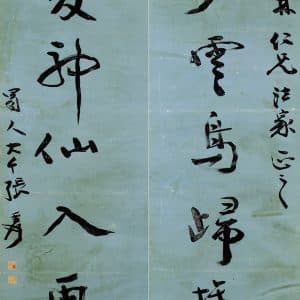 仁兄法家正之
雲鳥歸
神仙入画
蜀人大千張爰